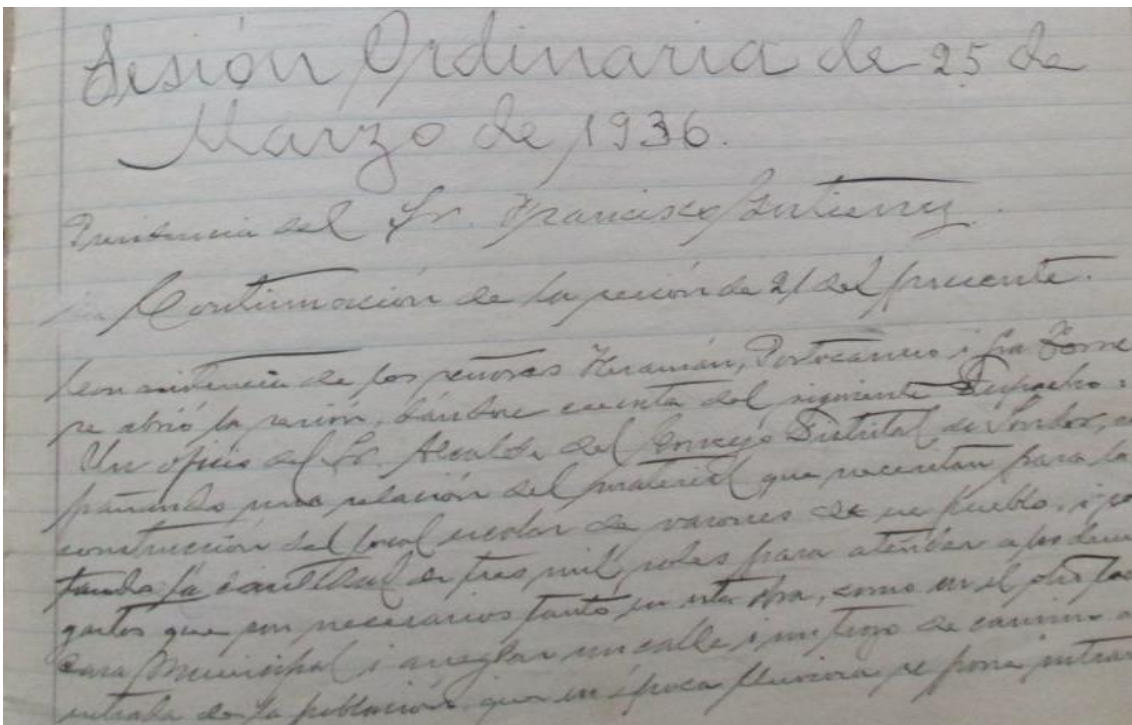 Sesión Ordinaria de 25 de
Marzo de 1936.
Presidencia del Sr. Francisco Gutierrez.
Continuación de la sesión de 21 del presente.
Con asistencia de los señores Huamán, Portocarrero i la Torre
se abrió la sesión, dándose cuenta del siguiente despacho:
Un oficio del Sr. Alcalde del Concejo Distrital de
pañando una relación del material que necesitan para la
construcción del local escolar de varones de su pueblo, i
tando la cantidad de tres mil soles para atender a los
gastos que son necesarios tanto en esta obra, como en el
casa Municipal i arreglar un calle i un trozo de camino
entrada de la población, que en época lluviosa se pone